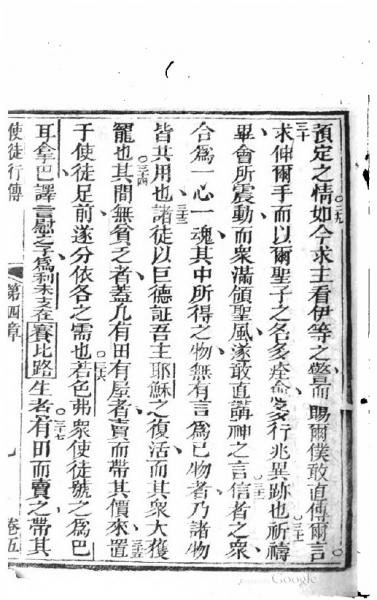 預定之情如今求主看伊等之驚而賜爾僕敢直傳爾言
三十
求伸爾手而以爾聖子之名多痊愈多行兆異跡也祈禱
畢會所震動而眾滿領聖風遂敢直講神之言信者之眾
合為一心一魂其中所得之物無有言為己物者乃諸物
皆共用也諸徒以巨德証吾主耶穌之復活而其眾大獲
寵也其間無貧乏者蓋凡有田有屋者賣而帶其價來置
于使徒足前遂分依各之需也若色弗眾使徒號之為巴
耳拿巴譯言慰之子為利未支在賽比路生者有田而賣之帶其
使徒行傳
第四章
卷五
Google